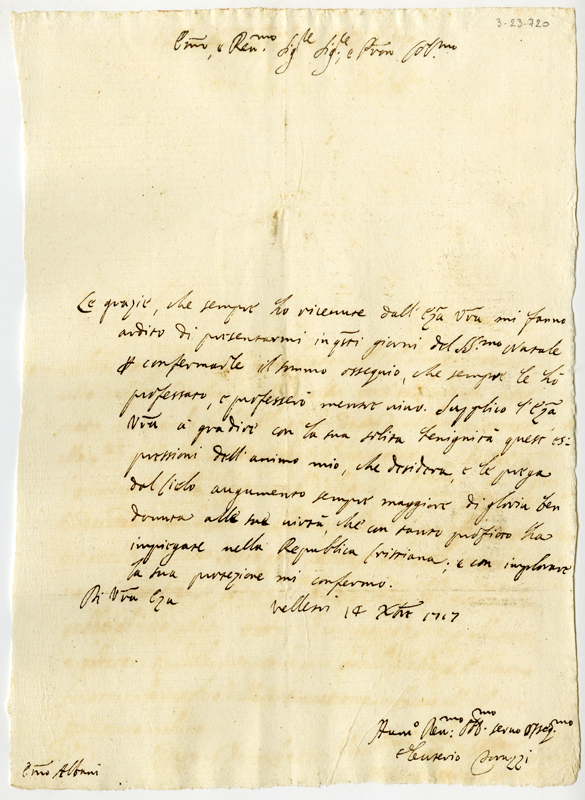 3-23-720
Em̃o, e Ren.mo Sig.re Sig.re, e Pron Col.mo
Le grazie, che sempre hò riceuute dall'Eza Vr̃a mi fanno
ardito di presentarmi in q̃sti giorni del SS.mo Natale
confermarle il sommo ossequio, che sempre le hò
professato, e professerò mentre uiuo. Supplico l'Eza
Vr̃a à gradire con la sua solita benignità queste es-
pressioni dell'animo mio, che desidera, e le prega
dal Cielo augumento sempre maggiore di gloria ben
douuta alle sue uirtù, che con tanto profitto hà
impiegate nella Republica Cristiana; e con implorare
la sua protezione mi confermo.
Di Vr̃a Eza Velletri 14 Xbre 1717
Deuo.mo seruo osseq.mo
Eleuterio
Em̃o Albani